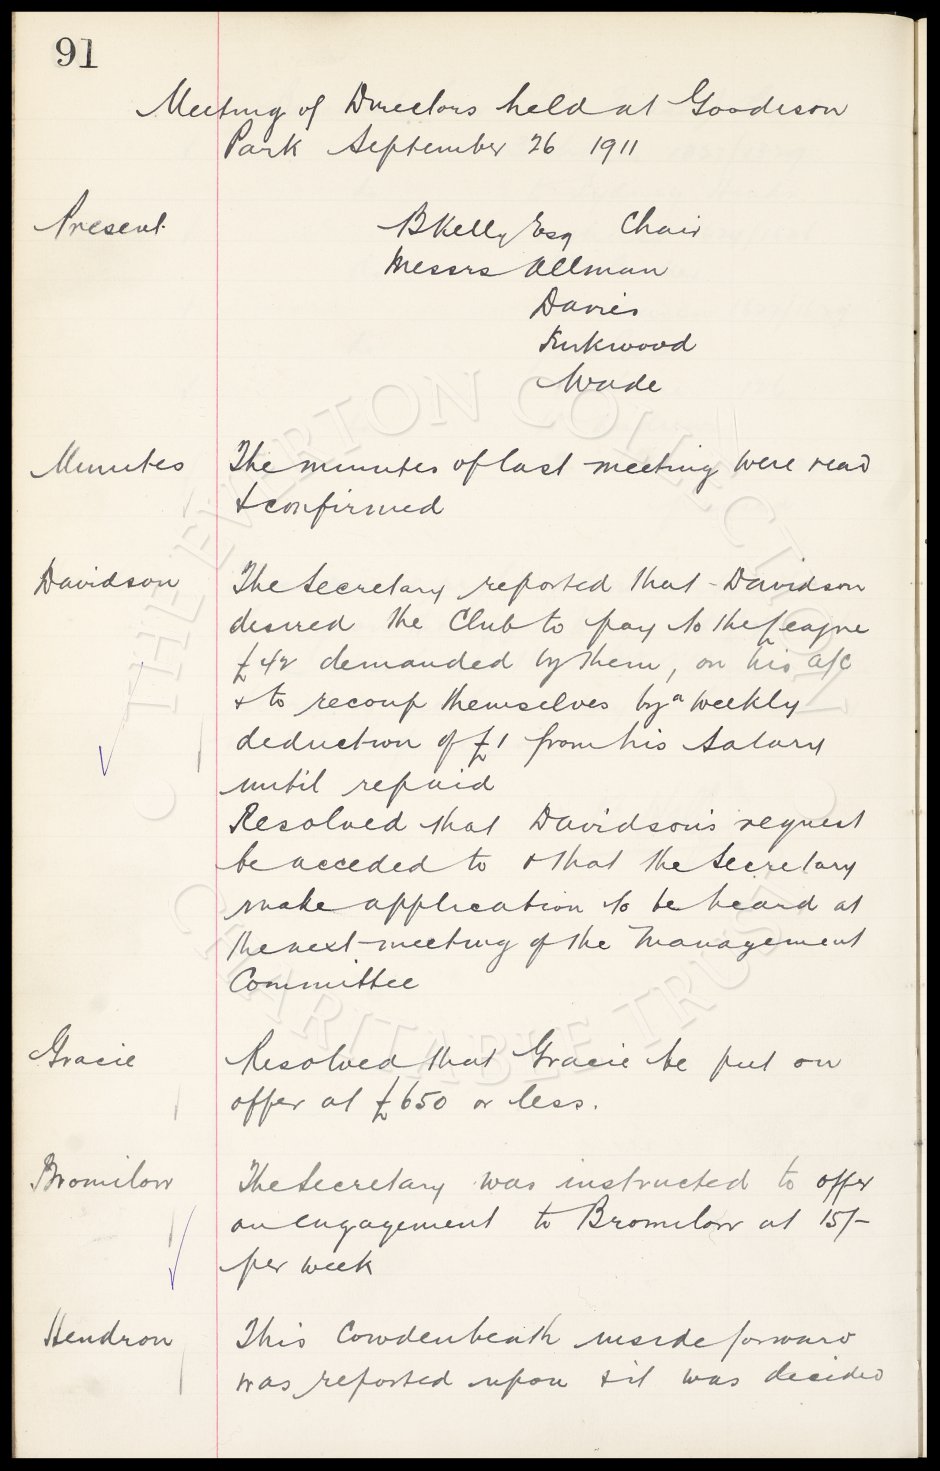 91
Meeting of Directors held at Goodison
Park September 26 1911
Present
B Kelly Esq Chair
Messrs Allman
Davies
Kirkwood
Wade
Minutes The minutes of last meeting were read
& confirmed
Davidson The Secretary reported that Davidson
desired the Club to pay to the League
£42 demanded by them, on his a/c
& to recoup themselves by a weekly
deduction of £1 from his salary
until repaid
Resolved that Davidson's request
be acceded to & that the Secretary
make application to be heard at
the next meeting of the Management
Committee
Gracie Resolved that Gracie be put on
offer at £650 or less.
Bromilow The Secretary was instructed to offer
an engagement to Bromilow at 15/-
per week
Hendron This Cowdenbeath inside forward
was reported upon & it was decided
THE EVERTON COLLECTION
CHARITABLE TRUST